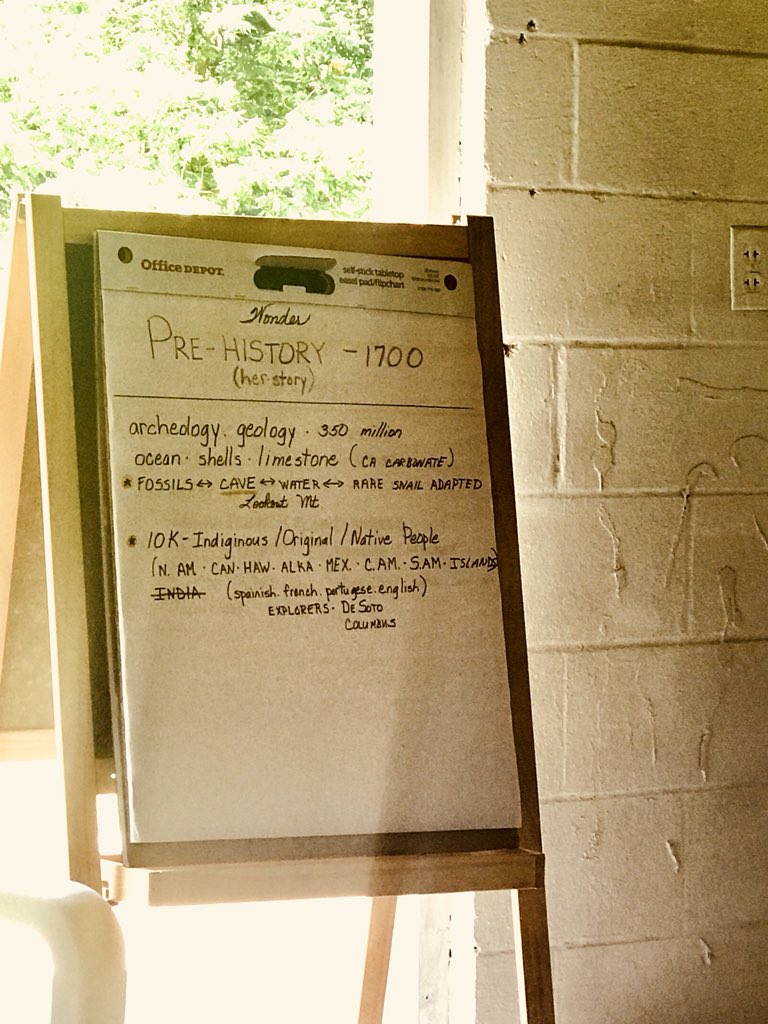 Office DEPOT.
self-stick tabletop
easel pad/flipchart
Wonder
PRE-HISTORY - 1700
(her-story)
archeology. geology · 350 million
ocean · shells · limestone (CA CARBONATE)
* FOSSILS ↔ CAVE ↔ WATER ↔ RARE SNAIL ADAPTED
Lookout Mt
* 10K - Indiginous / Original / Native People
(N. AM · CAN · HAW · ALKA · MEX. · C.AM. · S.AM · ISLANDS)
INDIA (spainish. french. portugese. english)
EXPLORERS · DE SOTO
COLUMBUS